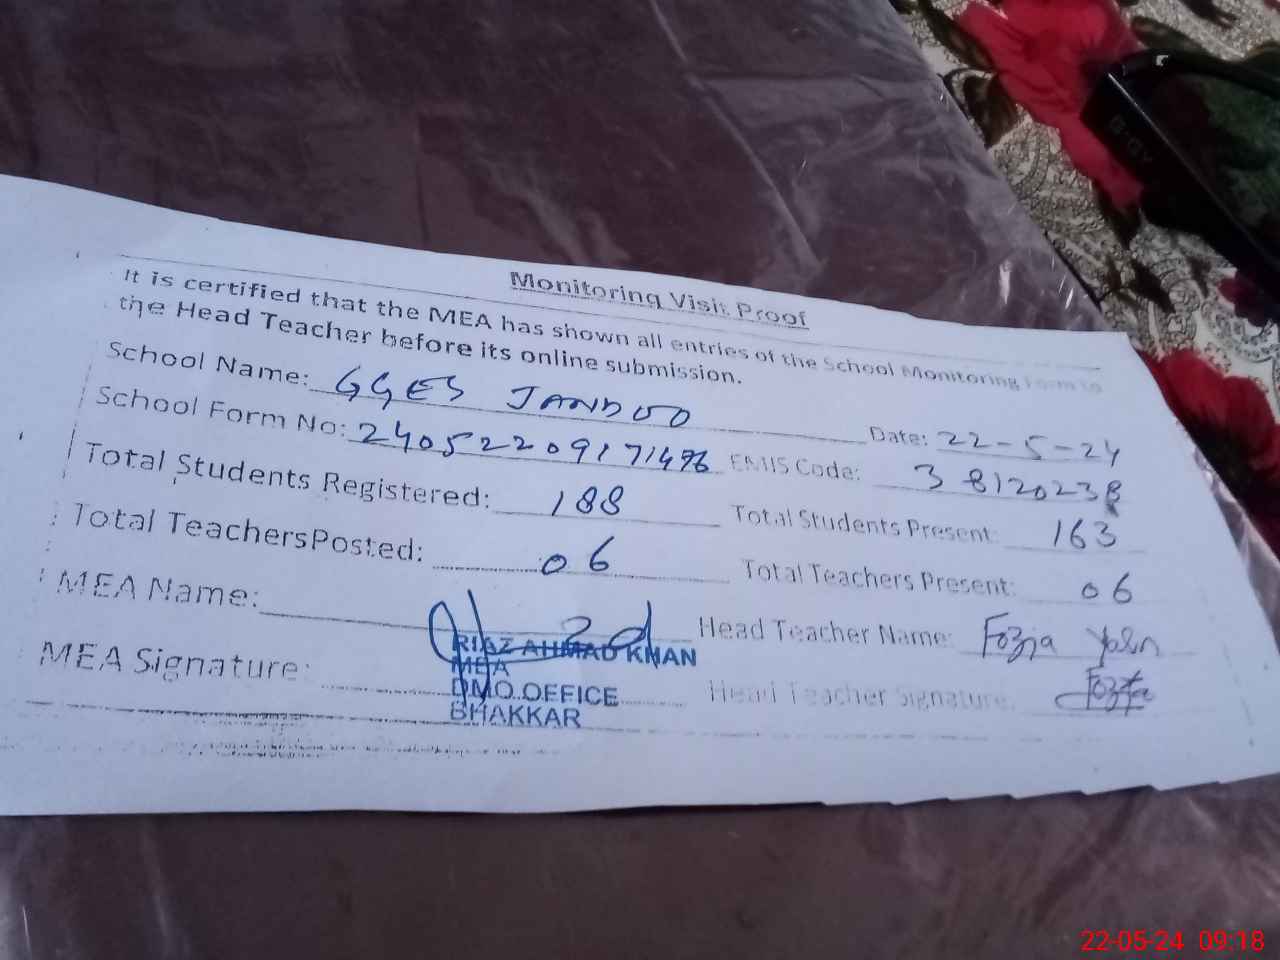 Monitoring Visit Proof
It is certified that the MEA has shown all entries of the School Monitoring Form to
the Head Teacher before its online submission.
School Name: GGES JANDOO Date: 22-5-24
School Form No: 24052209171496 EMIS Code: 38120238
Total Students Registered: 188 Total Students Present: 163
Total TeachersPosted: 06 Total Teachers Present: 06
MEA Name: Head Teacher Name: Fozia
RIAZ AHMAD KHAN
MEA
MEA Signature: Head Teacher Signature: Fozia
DMO.OFFICE
BHAKKAR
22-05-24 09:18